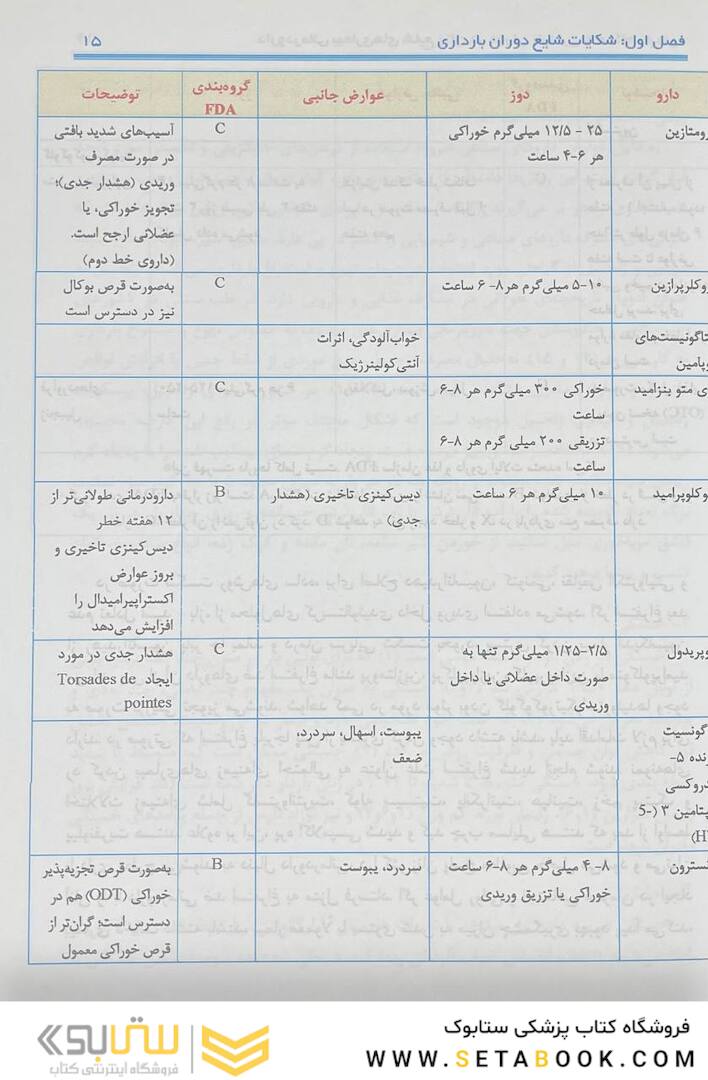 فصل اول: شکایات شایع دوران بارداری ۱۵
دارو دوز عوارض جانبی گروه‌بندی FDA توضیحات
رومتازین
۲۵ - ۱۲/۵ میلی‌گرم خوراکی
هر ۶-۴ ساعت
C
آسیب‌های شدید بافتی
در صورت مصرف
وریدی (هشدار جدی)؛
تجویز خوراکی، یا
عضلانی ارجح است.
(داروی خط دوم)
وکلرپرازین
۱۰-۵ میلی‌گرم هر ۸- ۶ ساعت
C
به‌صورت قرص بوکال
نیز در دسترس است
تاگونیست‌های
وپامین
خواب‌آلودگی، اثرات
آنتی‌کولینرژیک
ی متو بنزامید
خوراکی ۳۰۰ میلی‌گرم هر ۸-۶
ساعت
تزریقی ۲۰۰ میلی گرم هر ۸-۶
ساعت
C
وکلوپرامید
۱۰ میلی‌گرم هر ۶ ساعت
دیس‌کینزی تاخیری (هشدار
جدی)
B
دارودرمانی طولانی‌تر از
۱۲ هفته خطر
دیس‌کینزی تاخیری و
بروز عوارض
اکستراپیرامیدال را
افزایش می‌دهد
وپریدول
۲/۵-۱/۲۵ میلی‌گرم تنها به
صورت داخل عضلانی یا داخل
وریدی
C
هشدار جدی در مورد
ایجاد Torsades de
pointes
گونسیت
رنده ۵-
دروکسی
پیتامین ۳ (5-
H)
یبوست، اسهال، سردرد،
ضعف
نسترون
۸- ۴ میلی‌گرم هر ۸-۶ ساعت
خوراکی یا تزریق وریدی
سردرد، یبوست
B
به‌صورت قرص تجزیه‌پذیر
خوراکی (ODT) هم در
دسترس است؛ گران‌تر از
قرص خوراکی معمول
فروشگاه کتاب پزشکی ستابوک
WWW.SETABOOK.COM
ستابوک
فروشگاه اینترنتی کتاب